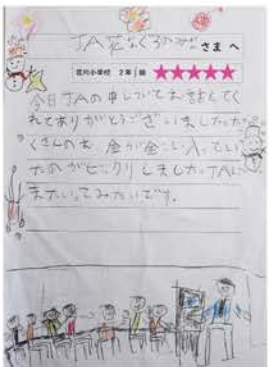 JA花なぐろのみなさまへ
花川小学校 2年1組 ★★★★★
今日JAの中しについてお話してく
れてありがとうございました。た
くさんのお金が金こに入っていっ
たのがビックリしました。JAに
またいってみたいです。